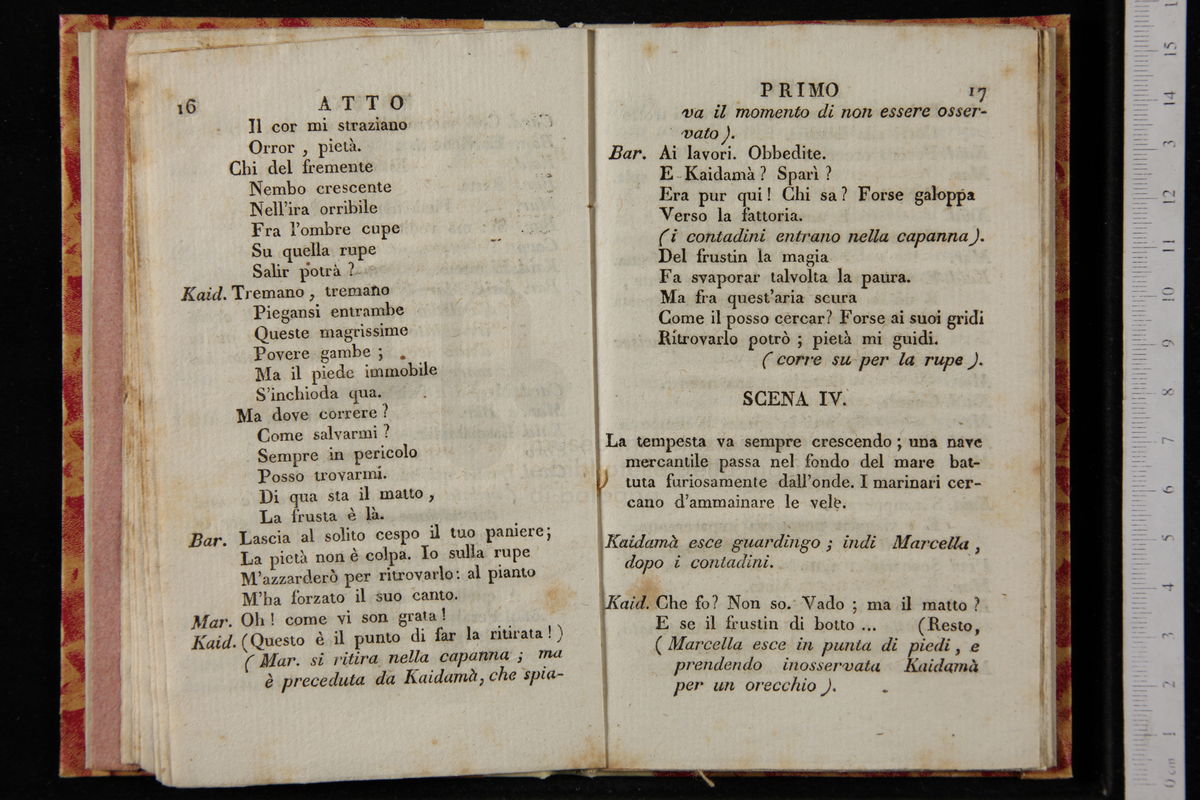 16
ATTO
Il cor mi straziano
Orror, pietà.
Chi del fremente
Nembo crescente
Nell'ira orribile
Fra l'ombre cupe
Su quella rupe
Salir potrà ?
Kaid. Tremano, tremano
Piegansi entrambe
Queste magrissime
Povere gambe ;
Ma il piede immobile
S'inchioda qua.
Ma dove correre ?
Come salvarmi ?
Sempre in pericolo
Posso trovarmi.
Di qua sta il matto,
La frusta è là.
Bar. Lascia al solito cespo il tuo paniere;
La pietà non è colpa. Io sulla rupe
M'azzarderò per ritrovarlo: al pianto
M'ha forzato il suo canto.
Mar. Oh ! come vi son grata !
Kaid. (Questo è il punto di far la ritirata ! )
( Mar. si ritira nella capanna ; ma
è preceduta da Kaidamà, che spia-
PRIMO
17
va il momento di non essere osser-
vato ).
Bar. Ai lavori. Obbedite.
E Kaidamà ? Sparì ?
Era pur qui ! Chi sa ? Forse galoppa
Verso la fattoria.
(i contadini entrano nella capanna ).
Del frustin la magia
Fa svaporar talvolta la paura.
Ma fra quest'aria scura
Come il posso cercar? Forse ai suoi gridi
Ritrovarlo potrò ; pietà mi guidi.
( corre su per la rupe ).
SCENA IV.
La tempesta va sempre crescendo ; una nave
mercantile passa nel fondo del mare bat-
tuta furiosamente dall'onde. I marinari cer-
cano d'ammainare le vele.
Kaidamà esce guardingo ; indi Marcella,
dopo i contadini.
Kaid. Che fo? Non so. Vado ; ma il matto ?
E se il frustin di botto ... (Resto,
( Marcella esce in punta di piedi, e
prendendo inosservata Kaidamà
per un orecchio ).
0 cm 1 2 3 4 5 6 7 8 9 10 11 12 13 14 15